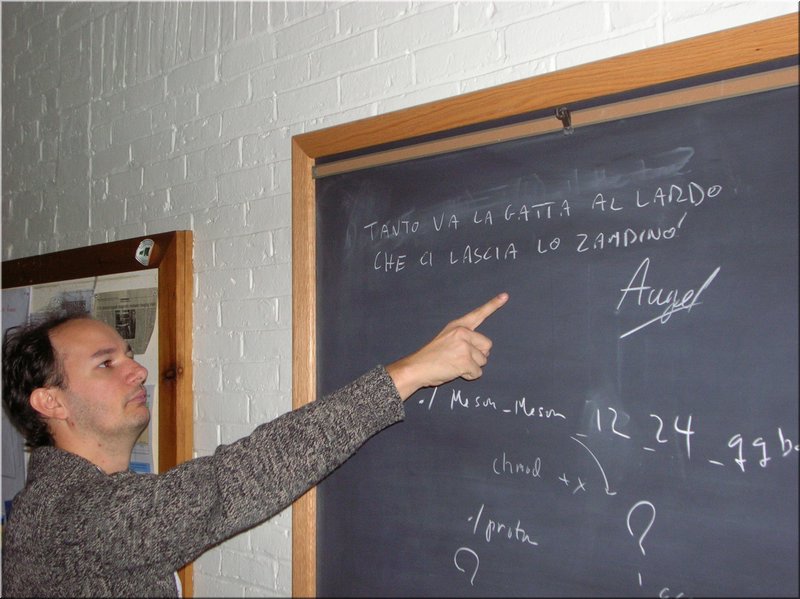 TANTO VA LA GATTA AL LARDO
CHE CI LASCIA LO ZAMPINO'
Angel
./ Meson_Meson_12_24_qqb
chmod +x
?
./prota
?